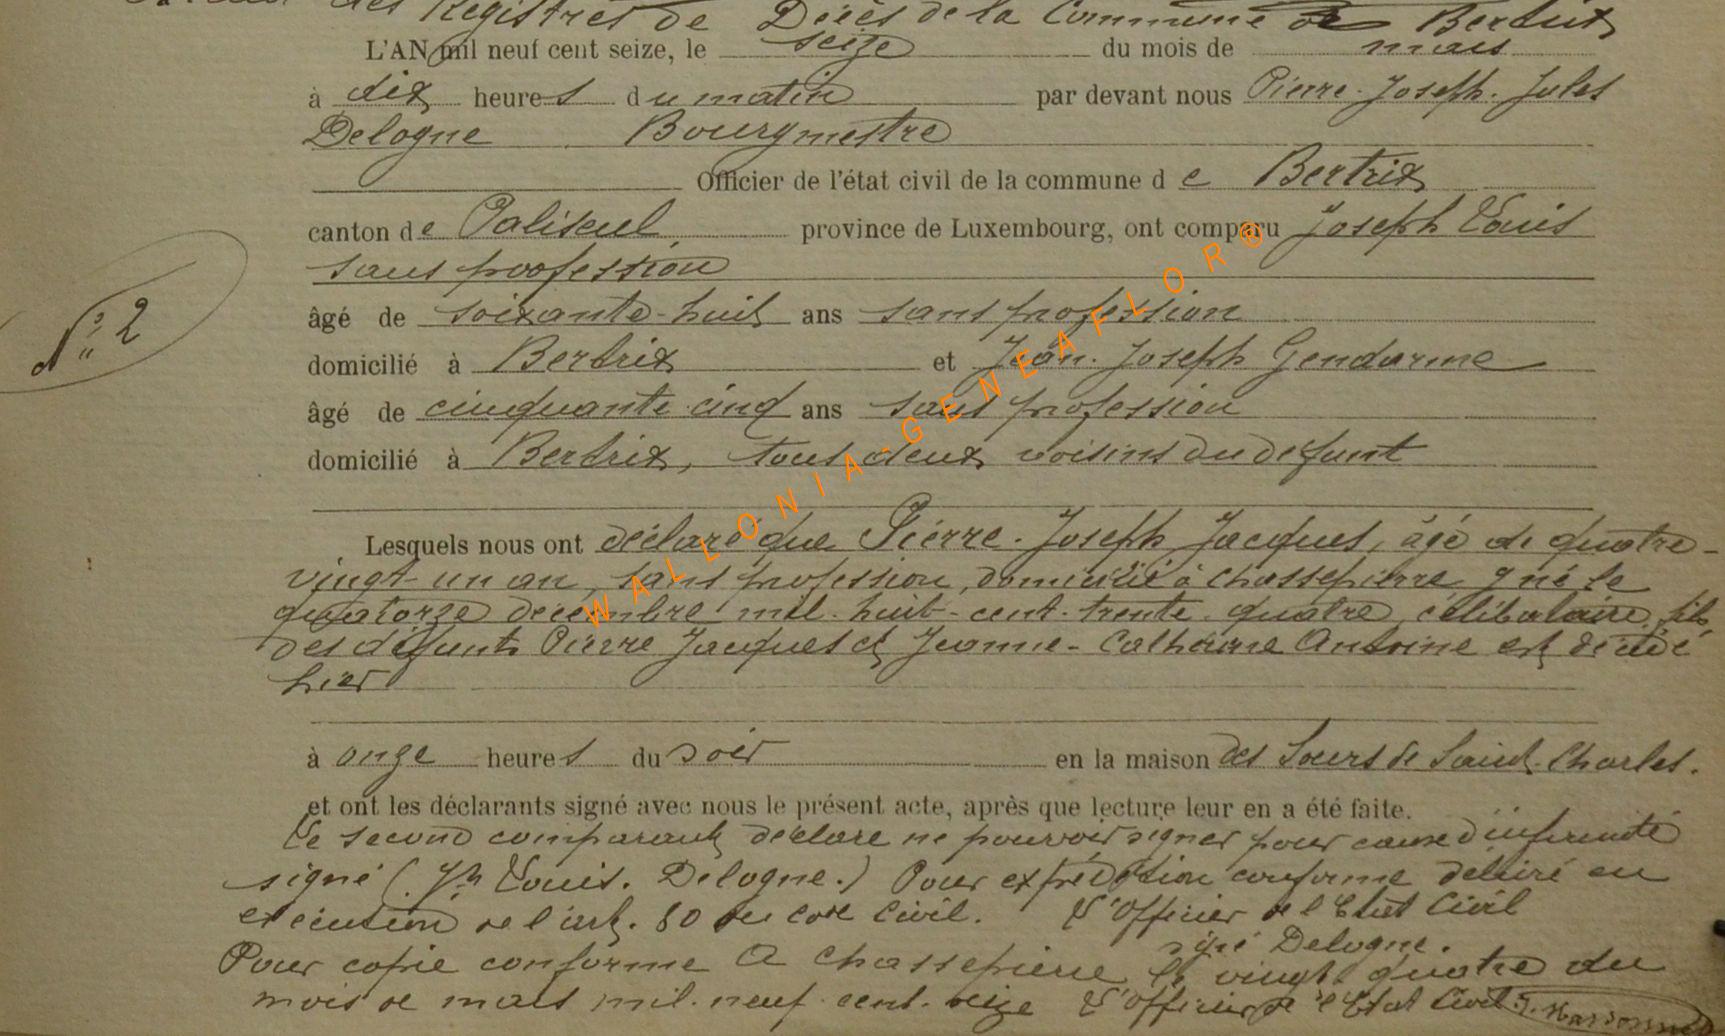 des Registres de Décès de la Commune de Bertrix
L'AN mil neuf cent seize, le seize du mois de mars
à dix heures du matin par devant nous Pierre-Joseph-Jules
Delogne Bourgmestre
Officier de l'état civil de la commune de Bertrix
canton de Paliseul, province de Luxembourg, ont comparu Joseph Louis
sans profession
âgé de soixante-huit ans sans profession
N° 2
domicilié à Bertrix et Jean-Joseph Gendarme
âgé de cinquante-cinq ans sans profession
domicilié à Bertrix, tous deux voisins du défunt
Lesquels nous ont déclaré que Pierre-Joseph Jacques, âgé de quatre-
vingt-un an, sans profession, domicilié à Chassepierre y né le
quatorze décembre mil-huit-cent-trente-quatre, célibataire, fils
des défunts Pierre Jacques et Jeanne-Catherine Antoine est décédé
hier
à onze heures du soir en la maison des Sœurs de Saint-Charles.
et ont les déclarants signé avec nous le présent acte, après que lecture leur en a été faite.
Le second comparant déclare ne pouvoir signer pour cause d'infirmité
signé (Jh Louis. Delogne.) Pour expédition conforme délivré en
exécution de l'art. 80 du Code Civil. L'Officier de l'Etat Civil
signé Delogne.
Pour copie conforme A Chassepierre le vingt-quatre du
mois de mars mil-neuf-cent-seize L'Officier de l'Etat Civil
WALLONIA-GENEAFLOR®